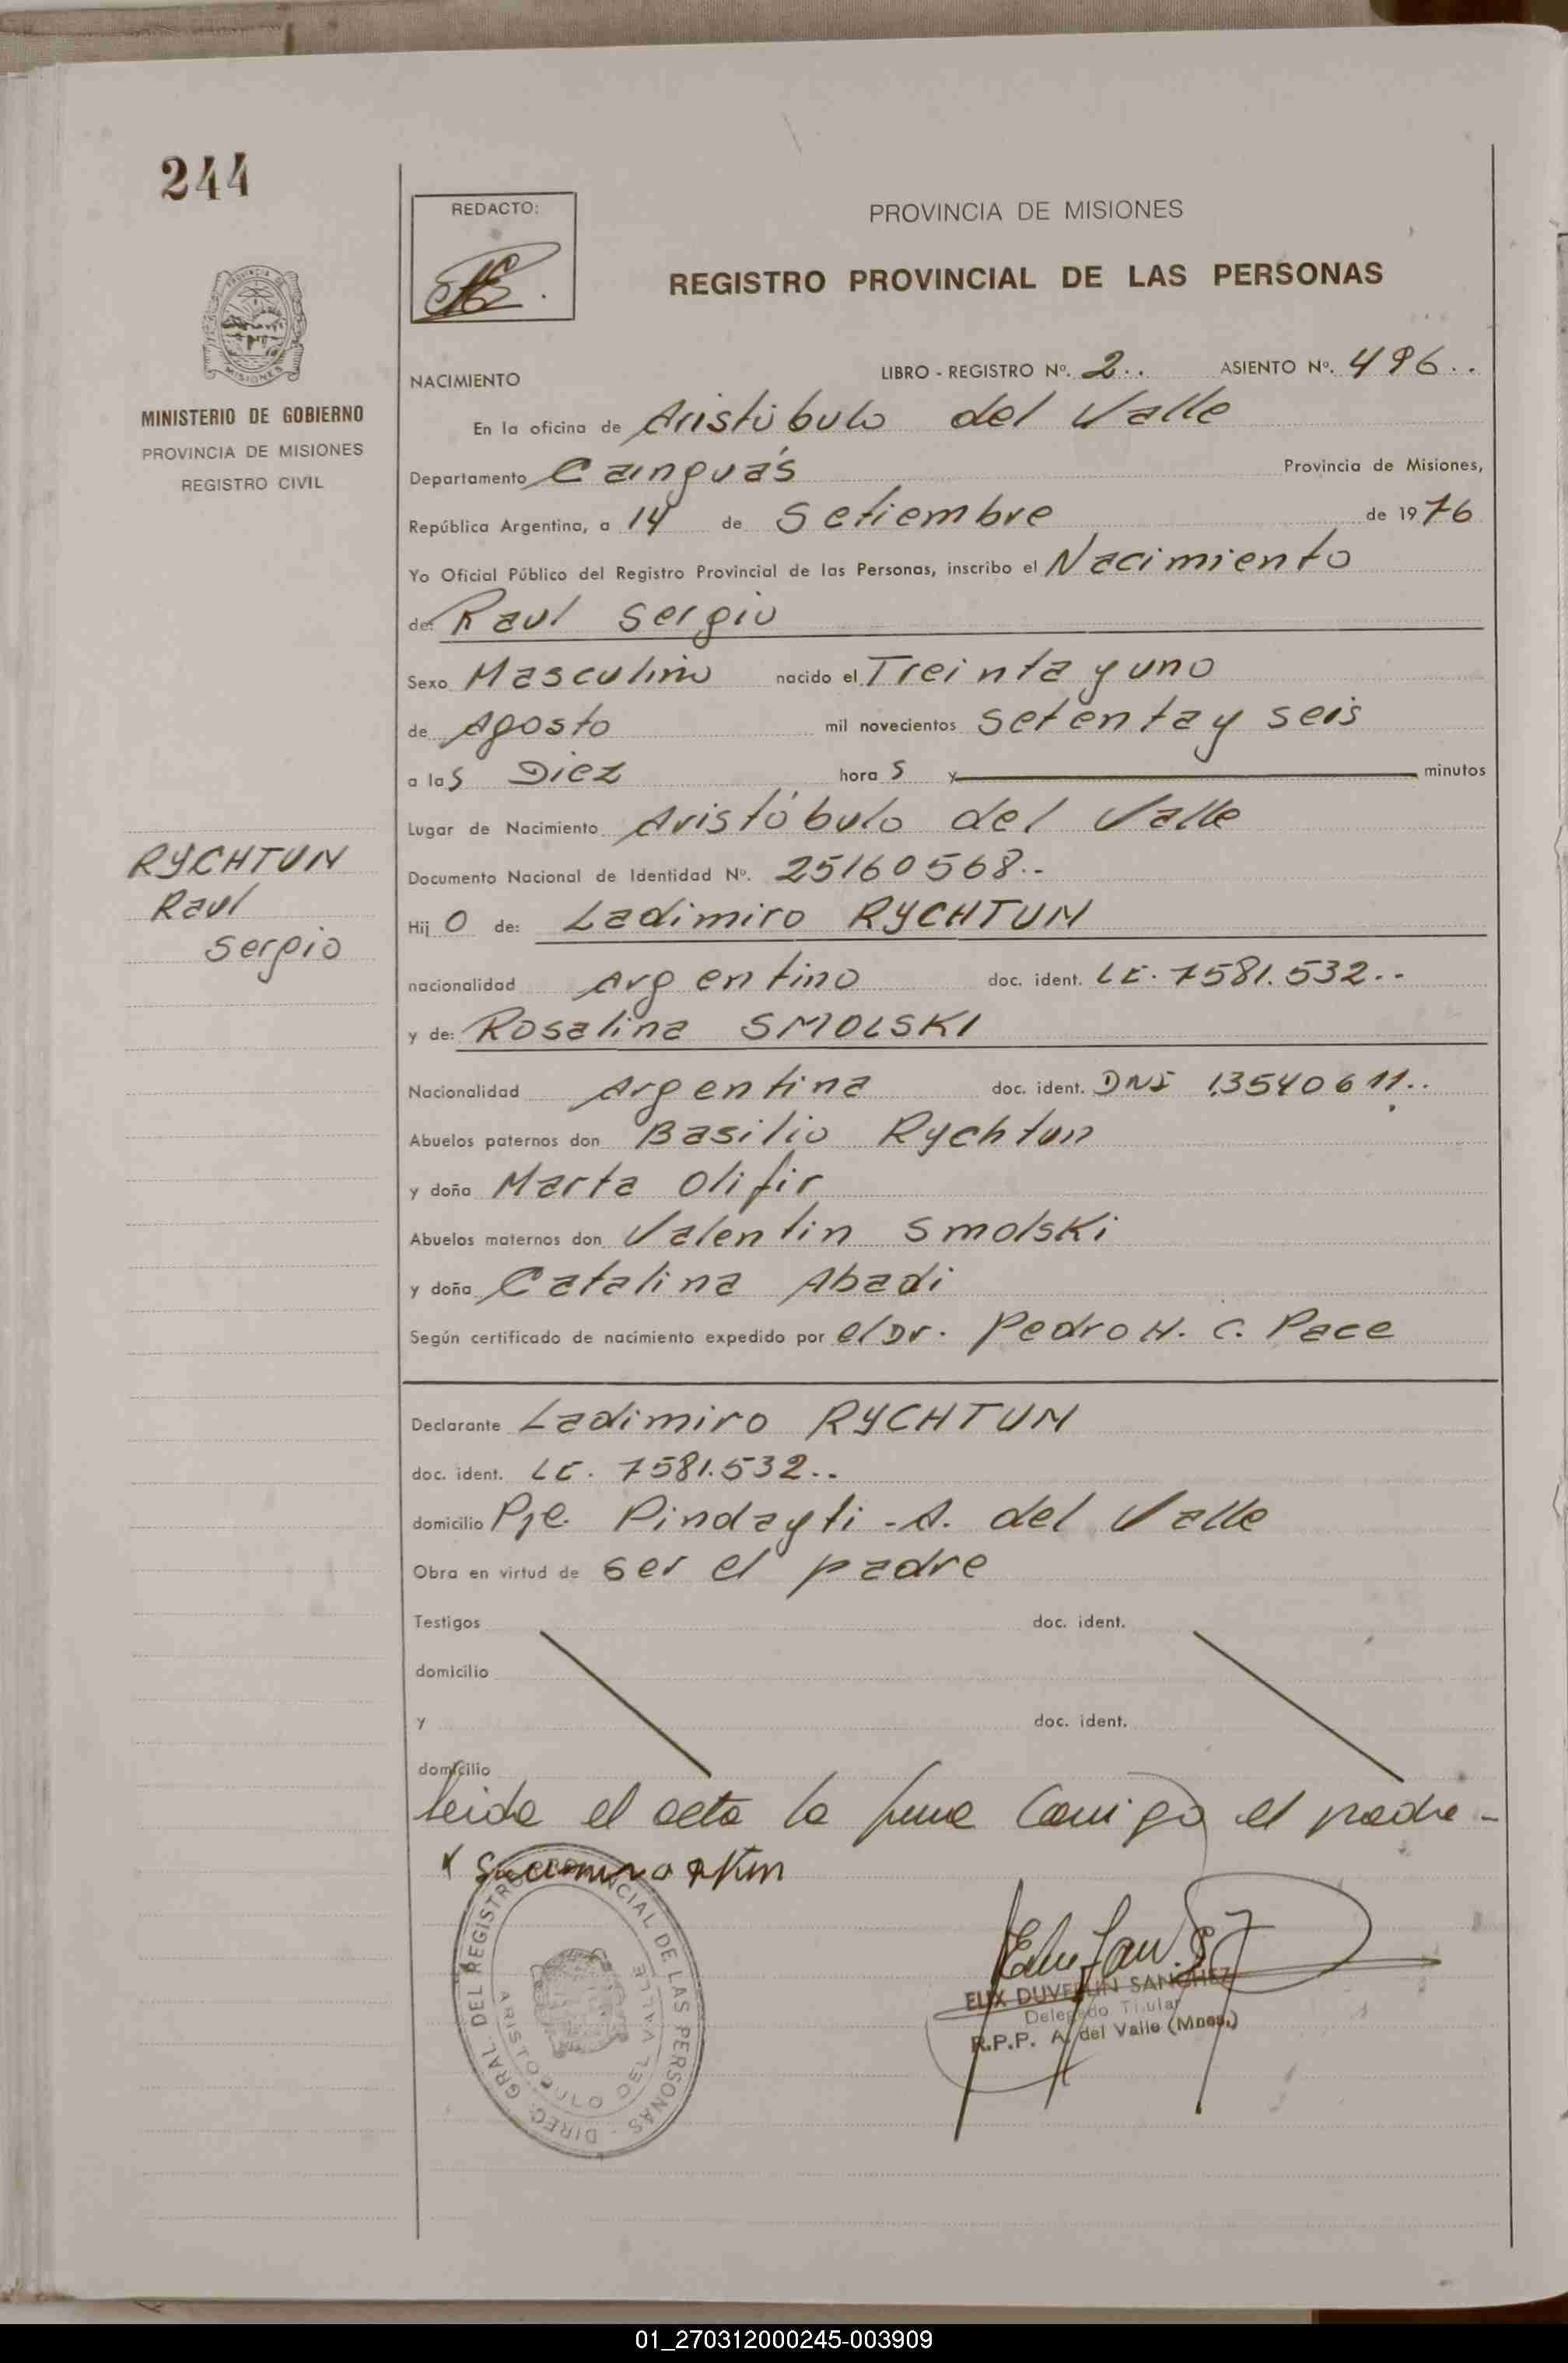 244
REDACTO:
PROVINCIA DE MISIONES
REGISTRO PROVINCIAL DE LAS PERSONAS
PROVINCIA DE
MISIONES
MINISTERIO DE GOBIERNO
PROVINCIA DE MISIONES
REGISTRO CIVIL
NACIMIENTO LIBRO - REGISTRO Nº. 2.. ASIENTO Nº. 496..
En la oficina de Aristóbulo del Valle
Departamento Cainguás Provincia de Misiones,
República Argentina, a 14 de Setiembre de 1976
Yo Oficial Público del Registro Provincial de las Personas, inscribo el Nacimiento
de: Raul Sergio
Sexo Masculino nacido el Treinta y uno
de Agosto mil novecientos setenta y seis
a las Diez horas y minutos
Lugar de Nacimiento Aristóbulo del Valle
RYCHTUN
Raul
Sergio
Documento Nacional de Identidad Nº. 25160568..
Hijo de: Ladimiro RYCHTUN
nacionalidad Argentino doc. ident. LE. 7581.532..
y de: Rosalina SMOLSKI
Nacionalidad Argentina doc. ident. DNI 13540611..
Abuelos paternos don Basilio Rychtun
y doña Marta Olifir
Abuelos maternos don Valentin Smolski
y doña Catalina Abadi
Según certificado de nacimiento expedido por el Dr. Pedro H. C. Pace
Declarante Ladimiro RYCHTUN
doc. ident. LE. 7581.532..
domicilio Pje. Pindayti - A. del Valle
Obra en virtud de ser el padre
Testigos doc. ident.
domicilio
y doc. ident.
domicilio
leida el acta la firma conmigo el padre -
DIREC. GRAL. DEL REGISTRO PROVINCIAL DE LAS PERSONAS -
ARISTOBULO DEL VALLE
ELIX DUVERLIN SANCHEZ
Delegado Titular
R.P.P. A. del Valle (Mnes.)
01_270312000245-003909